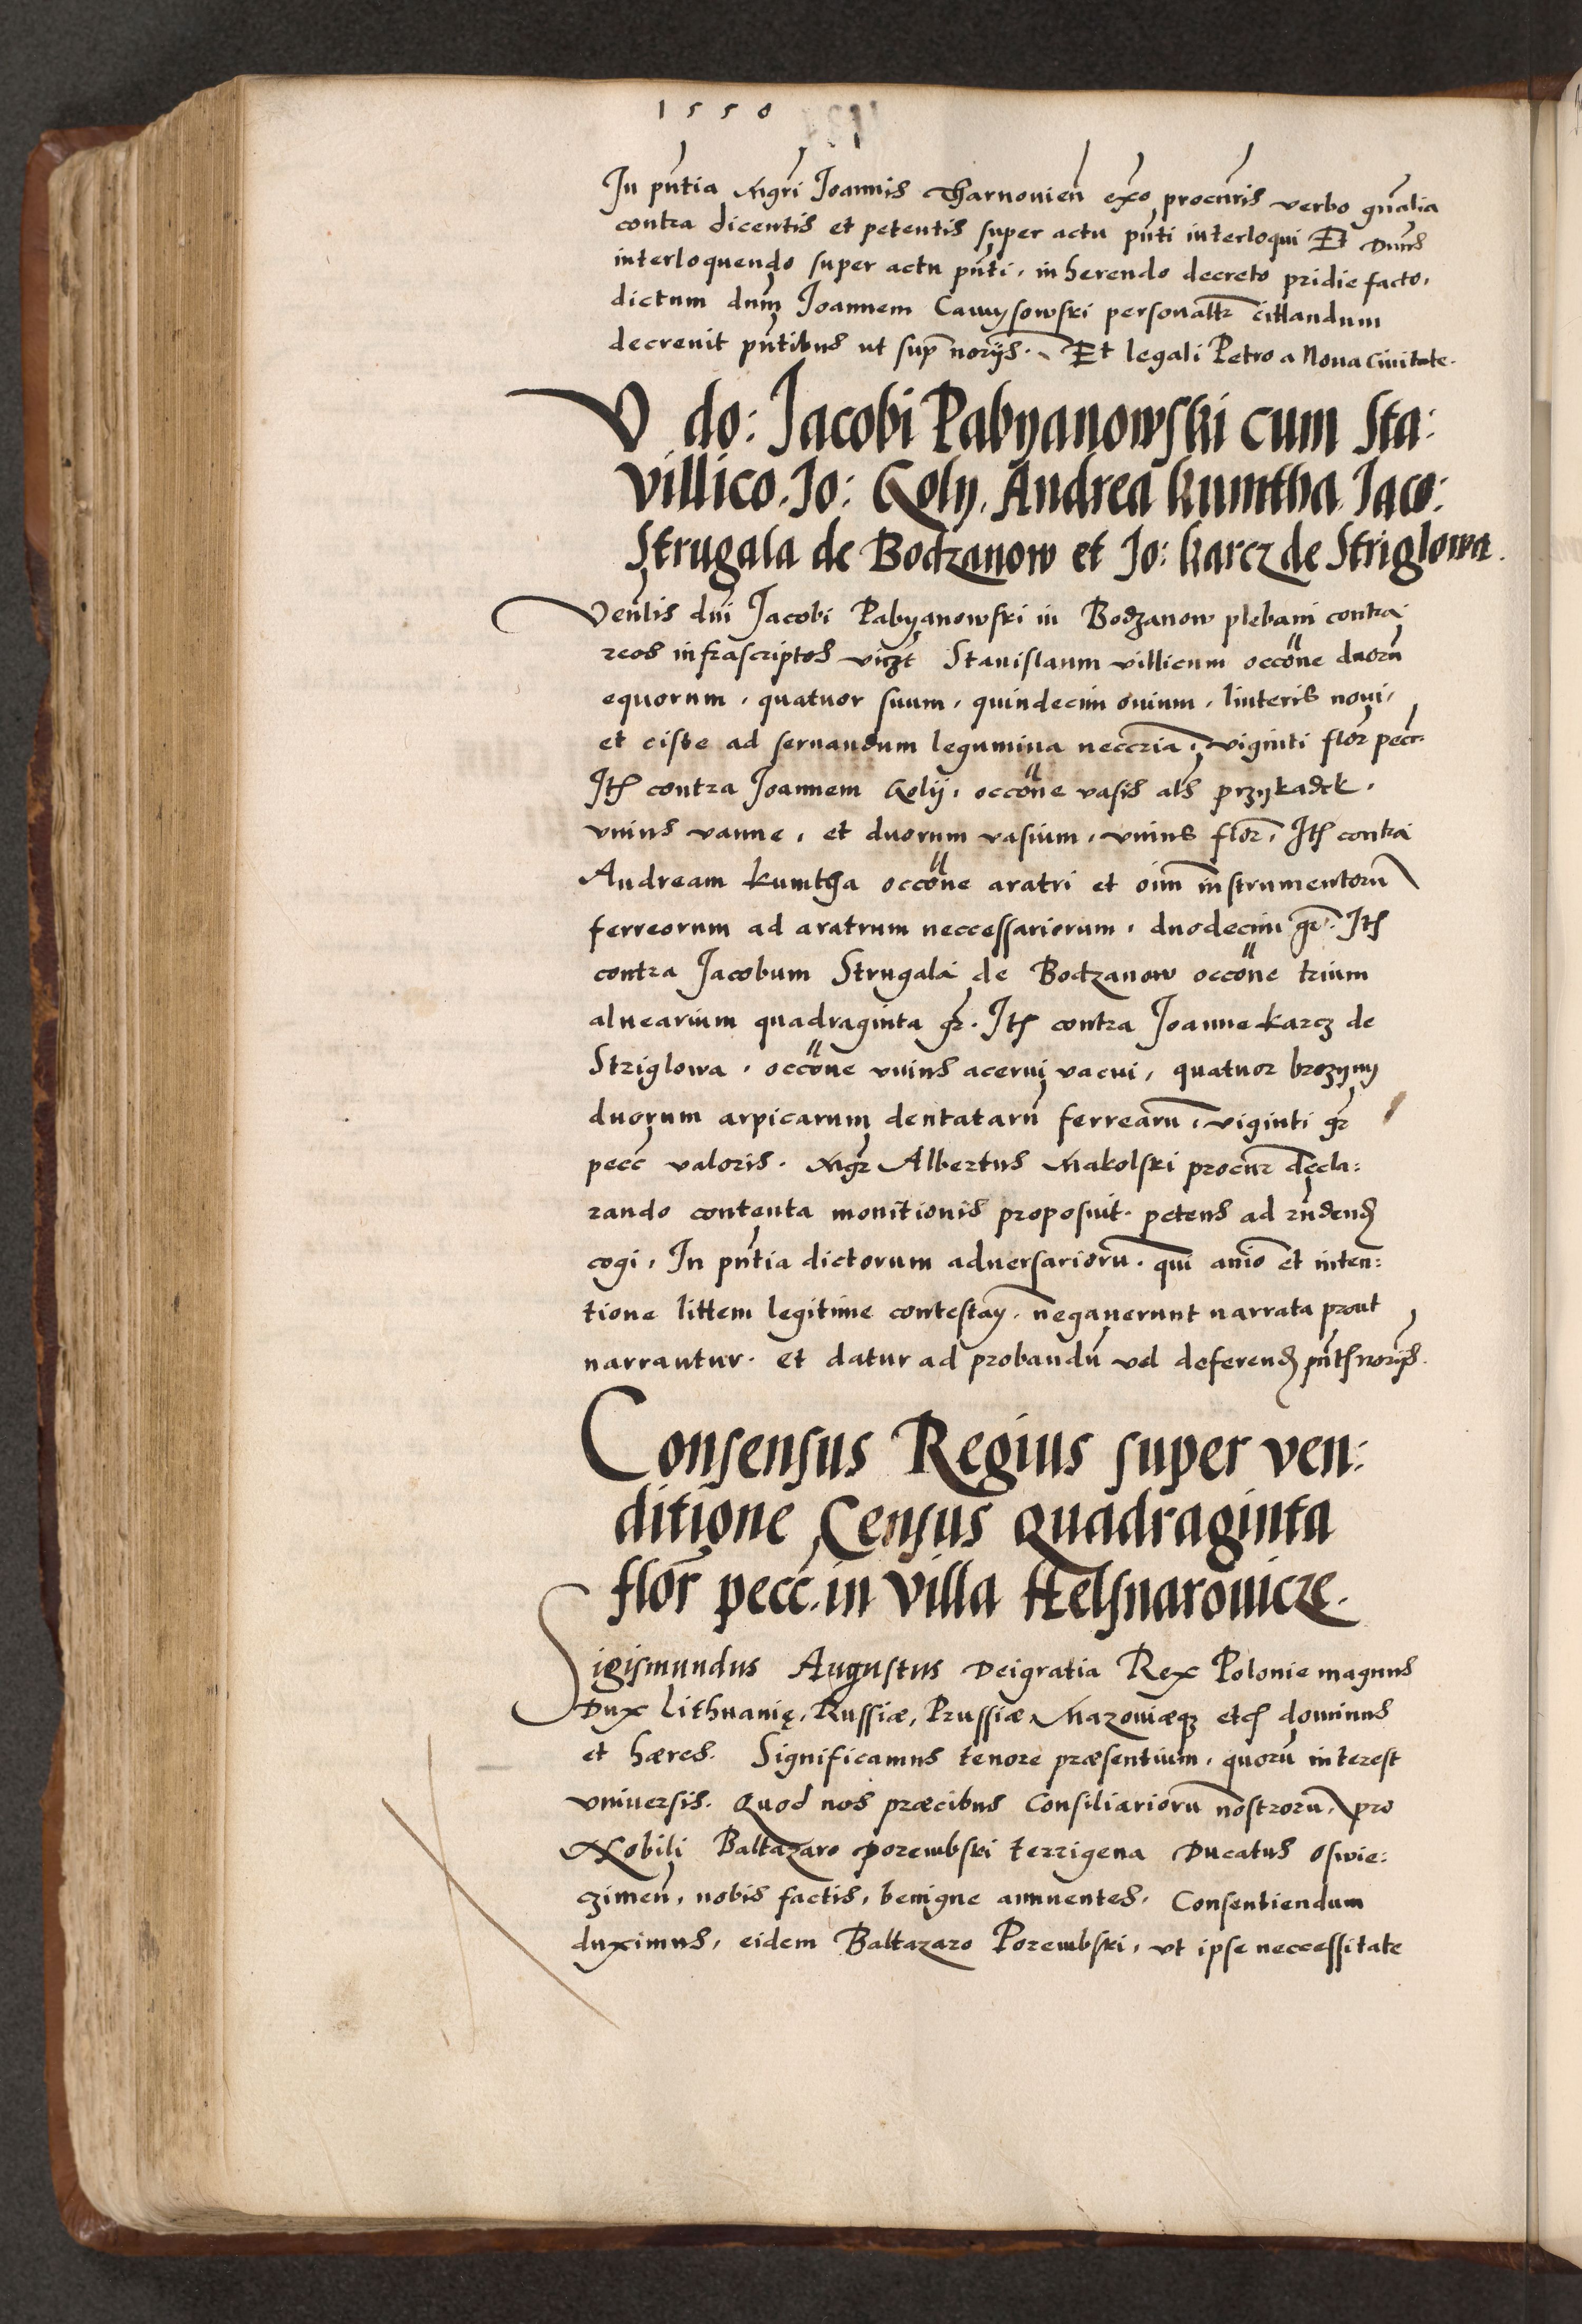 1550
In pñtia Mgri Joannis Tharnovieñ exo procuris verbo gñalia
contra dicentis et petentis super actu pñti interloqui Et Dnus
interloquendo super actu pñti, in herendo decreto pridie facto,
dictum dnm Joannem personaltr cittandum
decrevit pñtibus ut sup norijs. Et legali Petro a Nova Civitate.
V do: Jacobi Pabyanowski cum Sta:
villico. Jo: Koly. Andrea kumtha Jaco:
Strugala de Bodzanow et Jo: karcz de Striglowa.
Veñlis dni Jacobi Pabyanowski in Bodzanow plebani contra
reos infrascriptos vičzt Stanislaum villicum occöne duorũ
equorum, quatuor suum, quindecim ovium, linteris novi,
et ciste ad servandum legumina neccria, viginti flor pecc.
Itẽ contra Joannem Kolij, occöne vasis als przykadek,
vnius vanne, et duorum vasium, vnius flor, Itẽ contra
Andream kumtha occöne aratri et oim instrumentorũ
ferreorum ad aratrum neccessariorum, duodecim gr. Itẽ
contra Jacobum Strugala de Bodzanow occöne trium
alvearium quadraginta gr. Itẽ contra Joanne karcz de
Striglowa, occöne vnius acervi vacui, quatuor brozyny
duorum arpicarum dentatarũ ferrearũ, viginti gr
pecc valoris. Mgr Albertus Makolski procur decla:
rando contenta monitionis proposuit. petens ad rñdend
cogi, In pñtia dictorum adversariorũ. qui anio et inten:
tione littem legitime contestañ. negaverunt narrata prout
narrantur. et datur ad probandũ vel deferend pñtẽ norijs.
Consensus Regius super ven:
ditione Census quadraginta
flor pecc. in villa Helsnarovicze.
Sigismundus Augustus Dei gratia Rex Polonie magnus
Dux Lithuanię, Russiæ, Prussiæ, Mazoviæqz etc dominus
et hæres. Significamus tenore præsentium, quorũ interest
vniversis. Quod nos præcibus Consiliariorũ nostrorũ, pro
Nobili Baltazaro porembski terrigena Ducatus oswie:
czimeñ, nobis factis, benigne annuentes. Consentiendum
duximus, eidem Baltazaro Porembski, vt ipse neccessitate